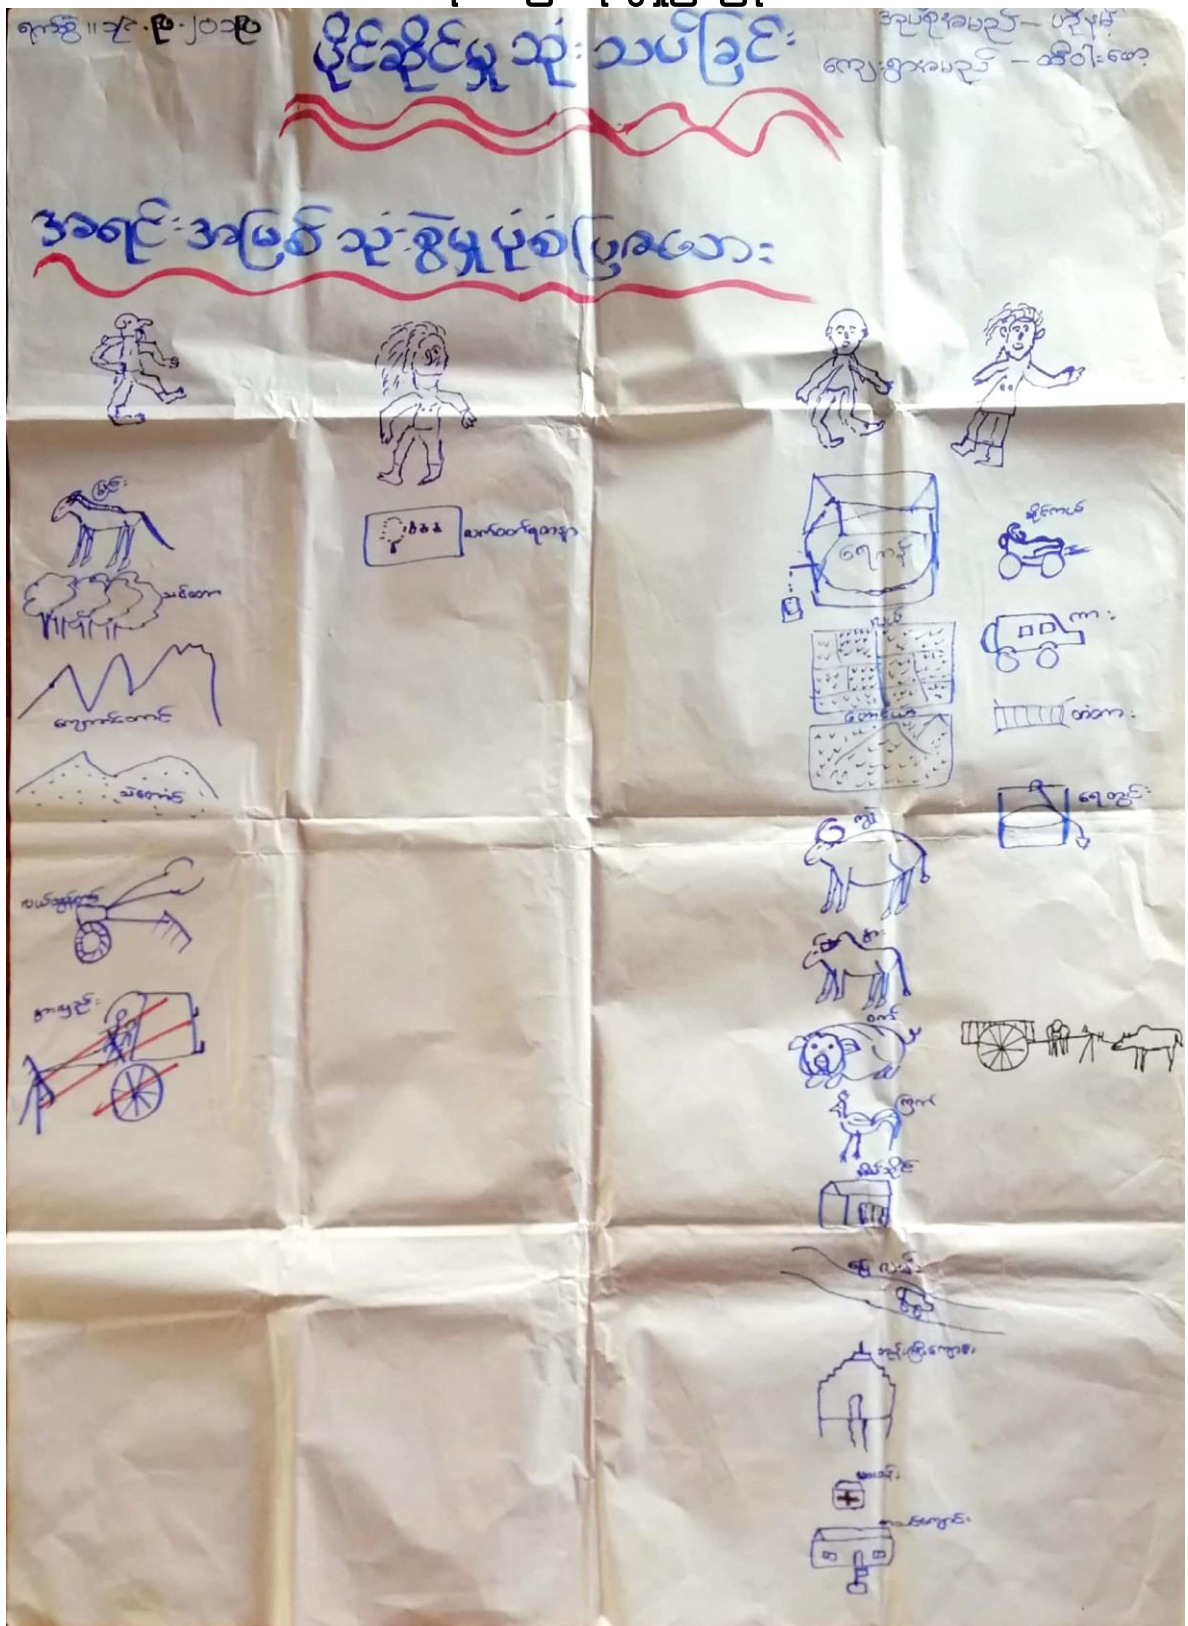 ပိုင်ဆိုင်မှု သုံးသပ်ခြင်း
အုပ်စုအမည် –
ကျေးရွာအမည် – ထီဝါးဖော့
အရင်းအမြစ် သုံးစွဲမှု ပုံစံပြုဇယား
မြင်း
သစ်တော
ကျောက်တောင်
သဲတောင်
လယ်ထွန်စက်
လက်ဝတ်ရတနာ
ရေကန်
လယ်
တောင်ယာ
ကျွဲ
နွား
ဝက်
ကြက်
မြေလမ်း
ဘုန်းကြီးကျောင်း
ဆေးခန်း
စာသင်ကျောင်း
ဆိုင်ကယ်
ကား
တံတား
ရေတွင်း